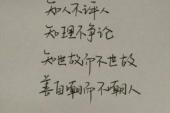 知人不评人
知理不争论
知世故而不世故
善自嘲而不嘲人